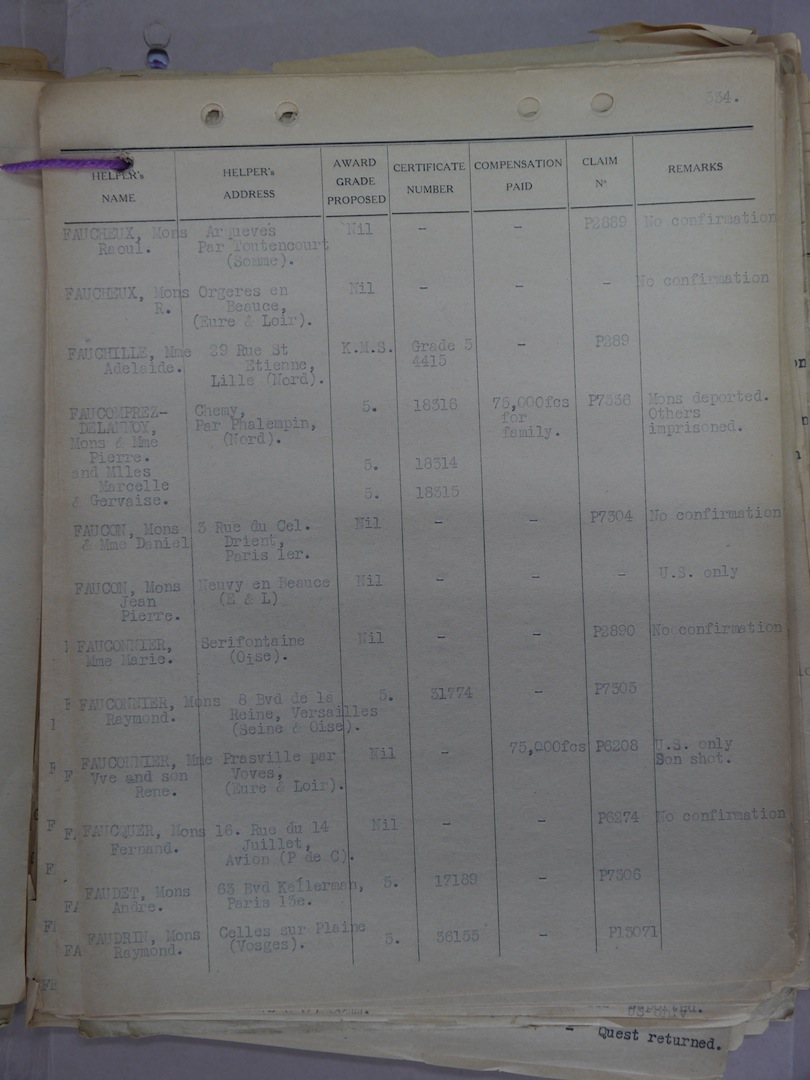 334.
HELPER's NAME
HELPER's ADDRESS
AWARD GRADE PROPOSED
CERTIFICATE NUMBER
COMPENSATION PAID
CLAIM Nº
REMARKS
FAUCHEUX, Mons Arqueves Nil - - P2889 No confirmation
Raoul. Par Toutencourt
(Somme).
FAUCHEUX, Mons Orgeres en Nil - - - No confirmation
R. Beauce,
(Eure & Loir).
FAUCHILLE, Mme 29 Rue St K.M.S. Grade 5 - P289
Adelaide. Etienne, 4415
Lille (Nord).
FAUCOMPREZ- Chemy, 5. 18316 75,000fcs P7536 Mons deported.
DELANNOY, Par Phalempin, for Others
Mons & Mme (Nord). family. imprisoned.
Pierre.
and Mlles 5. 18314
Marcelle
& Gervaise. 5. 18315
FAUCON, Mons 3 Rue du Cel. Nil - - P7304 No confirmation
& Mme Daniel Drient,
Paris 1er.
FAUCON, Mons Neuvy en Beauce Nil - - - U.S. only
Jean (E & L)
Pierre.
FAUCONNIER, Serifontaine Nil - - P2890 No confirmation
Mme Marie. (Oise).
FAUCONNIER, Mons 8 Bvd de la 5. 31774 - P7305
Raymond. Reine, Versailles
(Seine & Oise).
FAUCONNIER, Mme Prasville par Nil - 75,000fcs P6208 U.S. only
Yve and son Voves, Son shot.
Rene. (Eure & Loir).
FAUCQUER, Mons 16. Rue du 14 Nil - - P6274 No confirmation
Fernand. Juillet,
Avion (P de C).
FAUDET, Mons 63 Bvd Kellerman, 5. 17189 - P7306
Andre. Paris 13e.
FAUDRIN, Mons Celles sur Plaine 5. 36155 - P13071
Raymond. (Vosges).
- Quest returned.